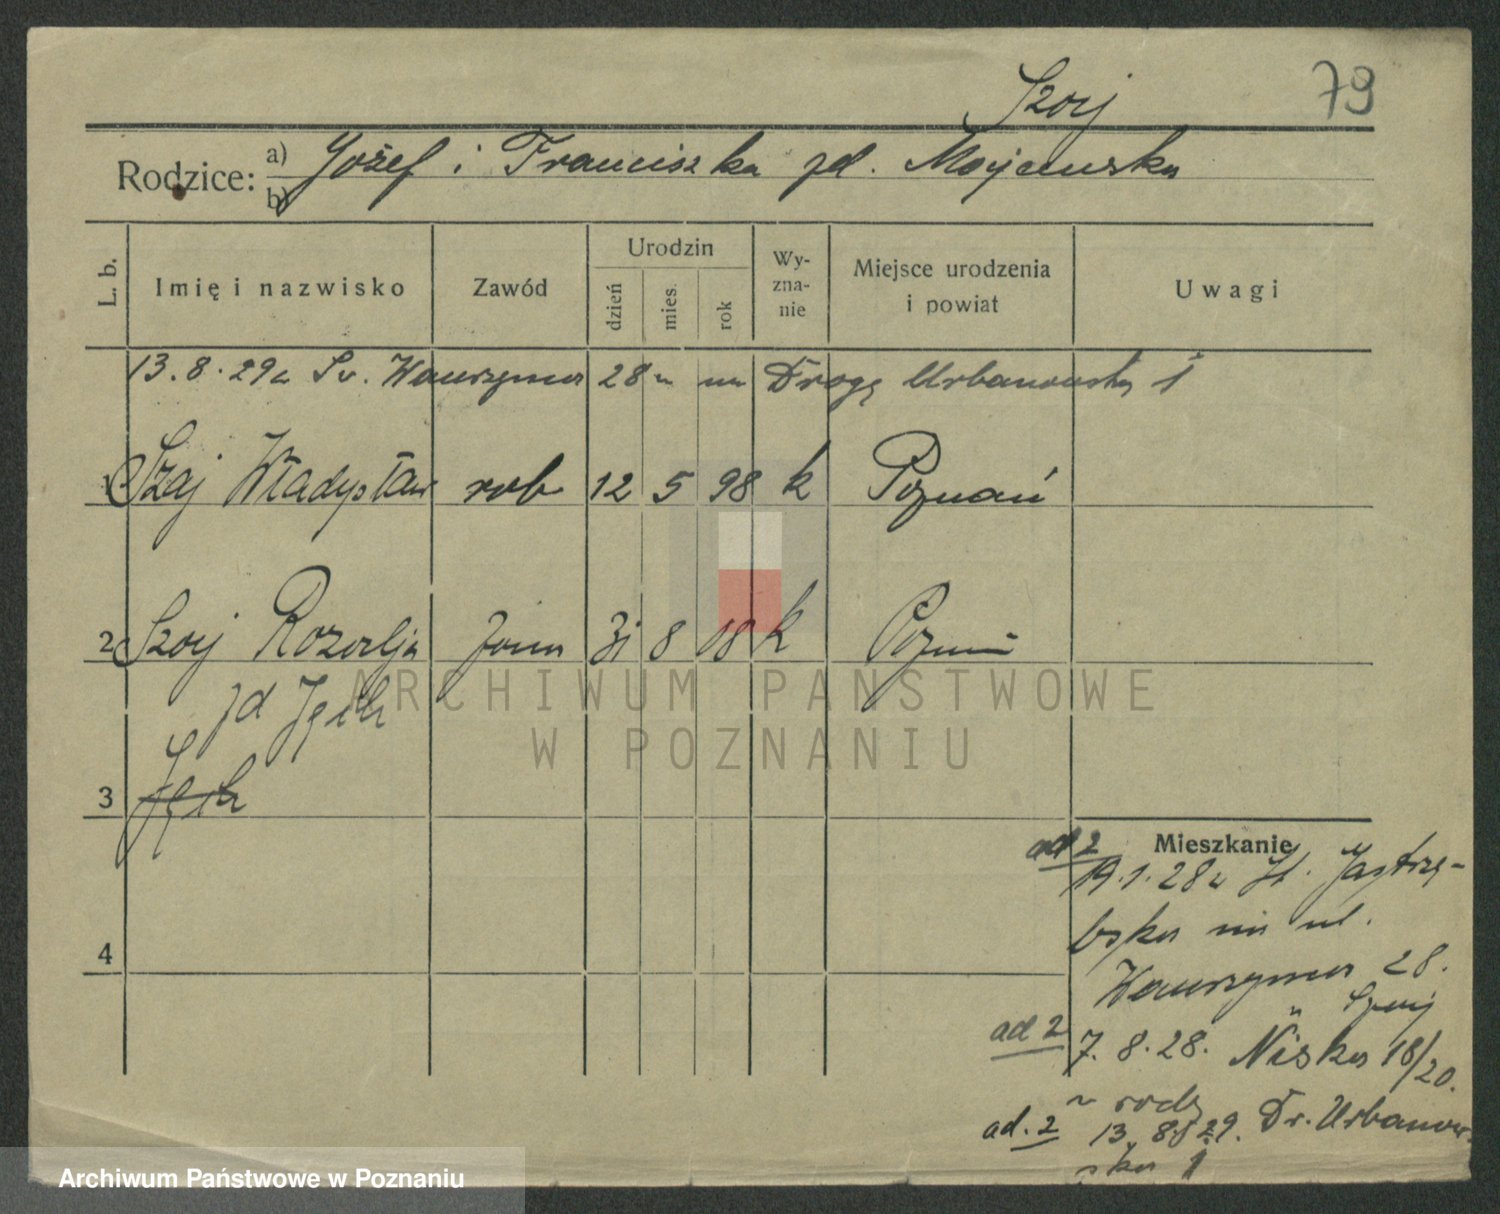 Szaj
79
Rodzice: a) Józef i Franciszka zd. Majewska
b)
L. b.
Imię i nazwisko
Zawód
Urodzin
dzień
mies.
rok
Wy-
zna-
nie
Miejsce urodzenia
i powiat
Uwagi
13.8.29 z Św. Wawrzyńca 28 na Drogę Urbanowską 1
1 Szaj Władysław rob 12 5 98 k Poznań
2 Szaj Rozalja żona 31 8 08 k Poznań
zd
3
4
ad 2
Mieszkanie
19.1.28 z
na ul.
Wawrzyńca 28.
Szaj
ad 2 7.8.28. Niska 18/20.
ad. 2 13.8.29. Dr. Urbanow-
ska 1
ARCHIWUM PAŃSTWOWE
W POZNANIU
Archiwum Państwowe w Poznaniu